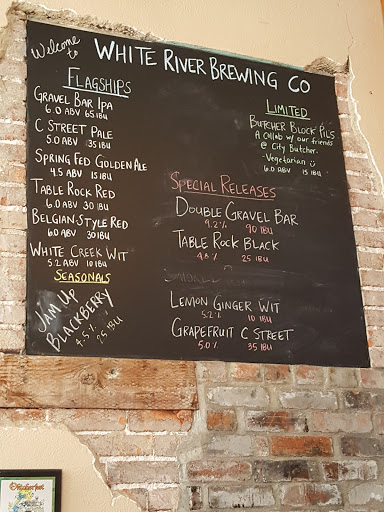 Welcome
to
WHITE RIVER BREWING CO
FLAGSHIPS
GRAVEL BAR IPA
6.0 ABV 65 IBU
C STREET PALE
5.0 ABV 35 IBU
SPRING FED GOLDEN ALE
4.5 ABV 15 IBU
TABLE ROCK RED
6.0 ABV 30 IBU
BELGIAN-STYLE RED
6.0 ABV 30 IBU
WHITE CREEK WIT
5.2 ABV 10 IBU
SEASONALS
JAM UP
BLACKBERRY
4.5% 25 IBU
LIMITED
BUTCHER BLOCK PILS
A collab w/ our friends
@ City Butcher.
- Vegetarian
6.0 ABV 15 IBU
SPECIAL RELEASES
DOUBLE GRAVEL BAR
9.2% 90 IBU
TABLE ROCK BLACK
4.8% 25 IBU
LEMON GINGER WIT
5.2% 10 IBU
GRAPEFRUIT C STREET
5.0% 35 IBU
Oktoberfest